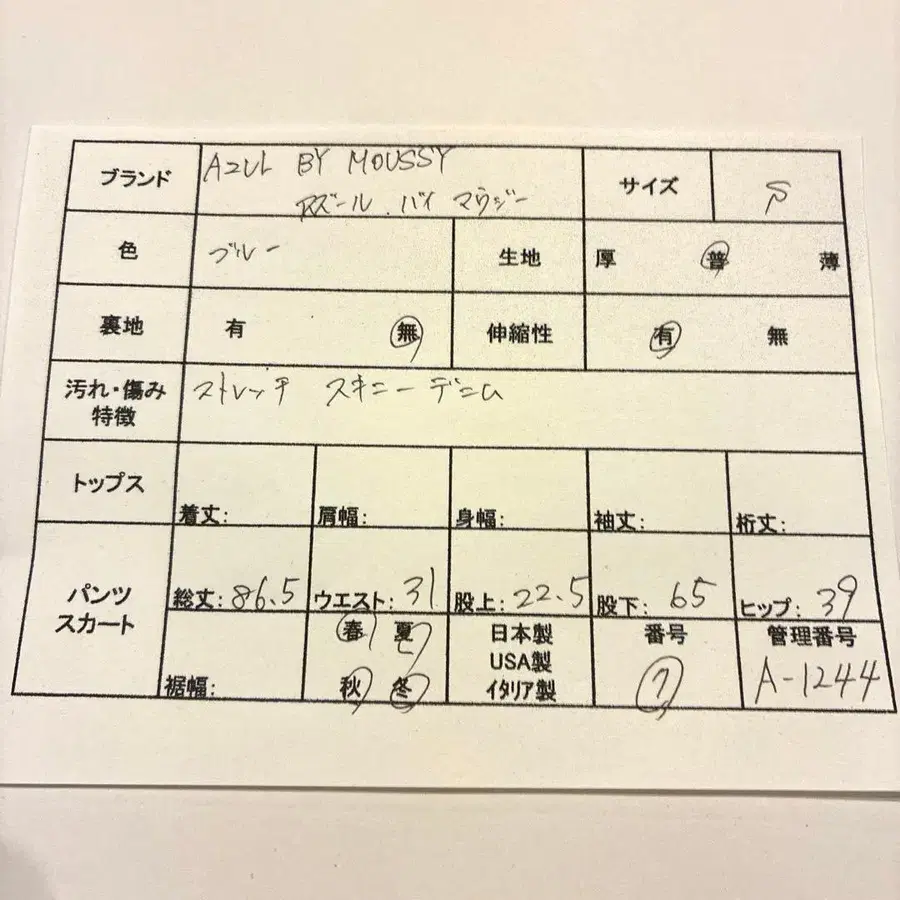 ブランド AZUL BY MOUSSY サイズ S
アズール.バイ マウジー
色 ブルー 生地 厚 普 薄
裏地 有 無 伸縮性 有 無
汚れ・傷み ストレッチ スキニーデニム
特徴
トップス
着丈: 肩幅: 身幅: 袖丈: 裄丈:
パンツ
スカート
総丈:86.5 ウエスト:31 股上:22.5 股下:65 ヒップ:39
春 夏 日本製 番号 管理番号
USA製
裾幅: 秋 冬 イタリア製 7 A-1244